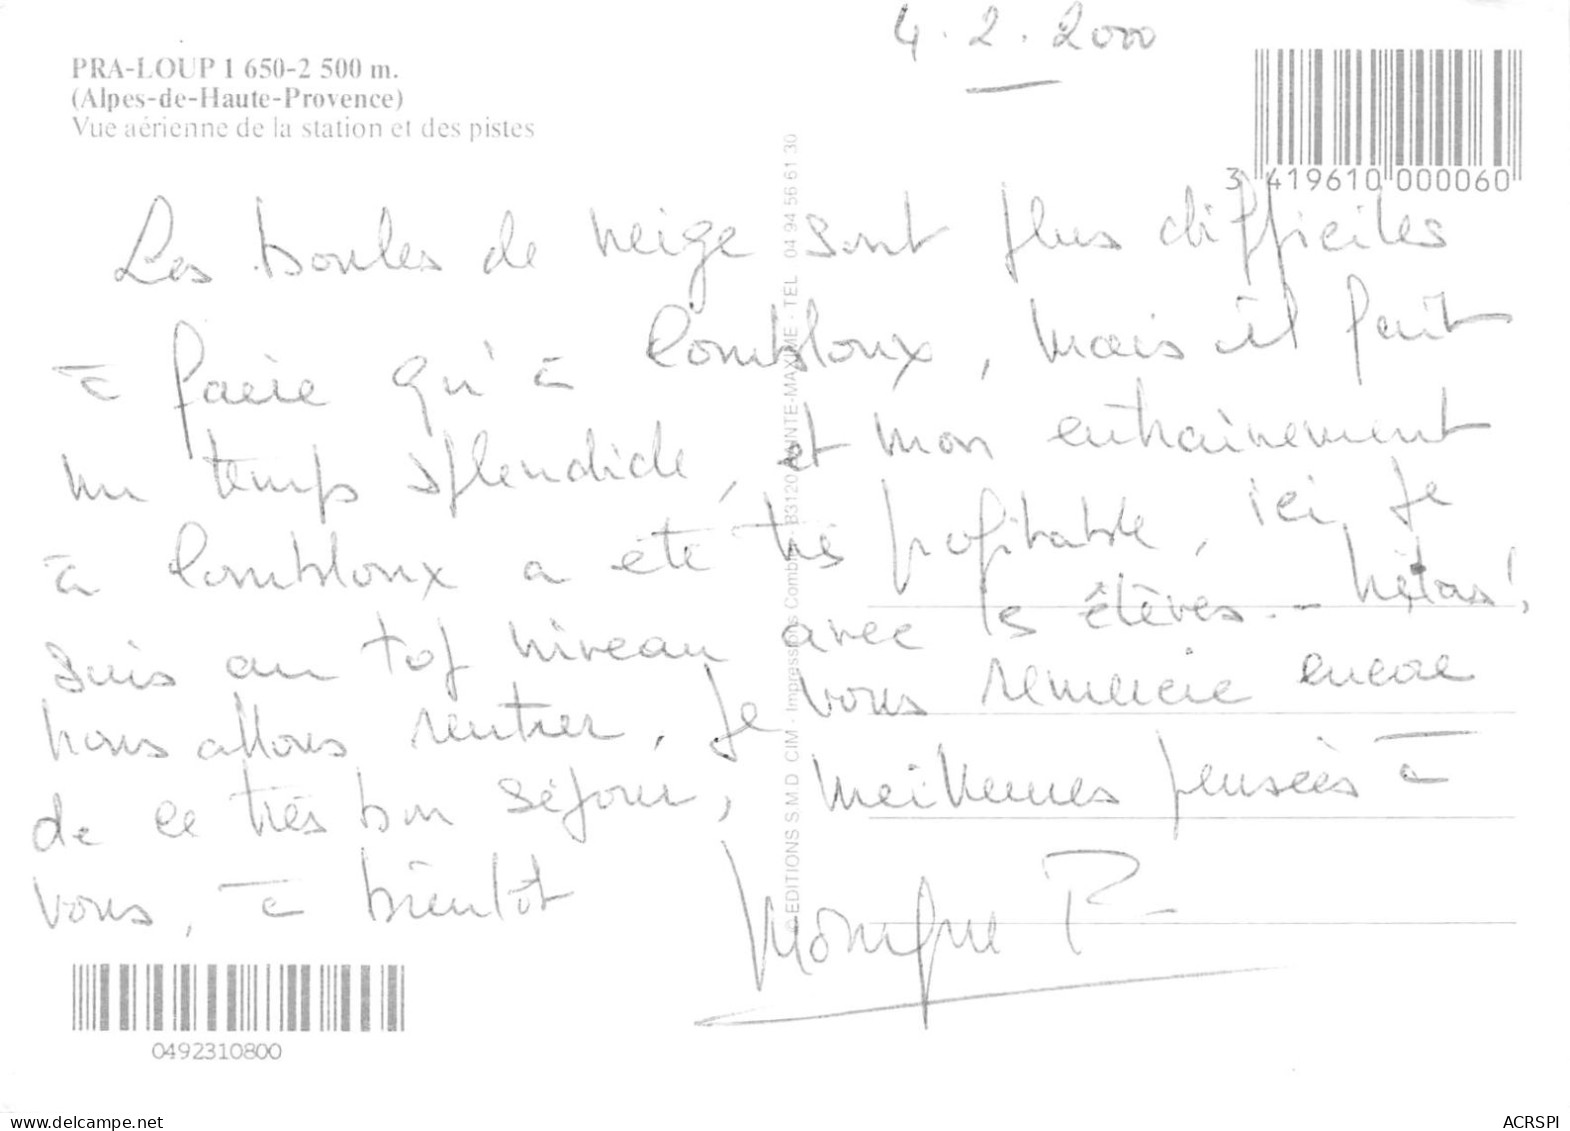 4.2.2000
PRA-LOUP 1 650-2 500 m.
(Alpes-de-Haute-Provence)
Vue aérienne de la station et des pistes
3 419610 000060
Les boules de neige sont plus difficiles
à faire qu'à Combloux, mais il fait
un temps splendide, et mon entrainement
à Combloux a été très profitable, ici je
suis au top niveau avec les élèves.- hélas!
nous allons rentrer, je vous remercie encore
de ce très bon séjour, meilleures pensées à
vous, à bientôt
Monique P.
© EDITIONS S.M.D CIM - Impressions Combier - 83120 SAINTE-MAXIME - TEL 04 94 56 61 30
0492310800
delcampe.net
ACRSPI